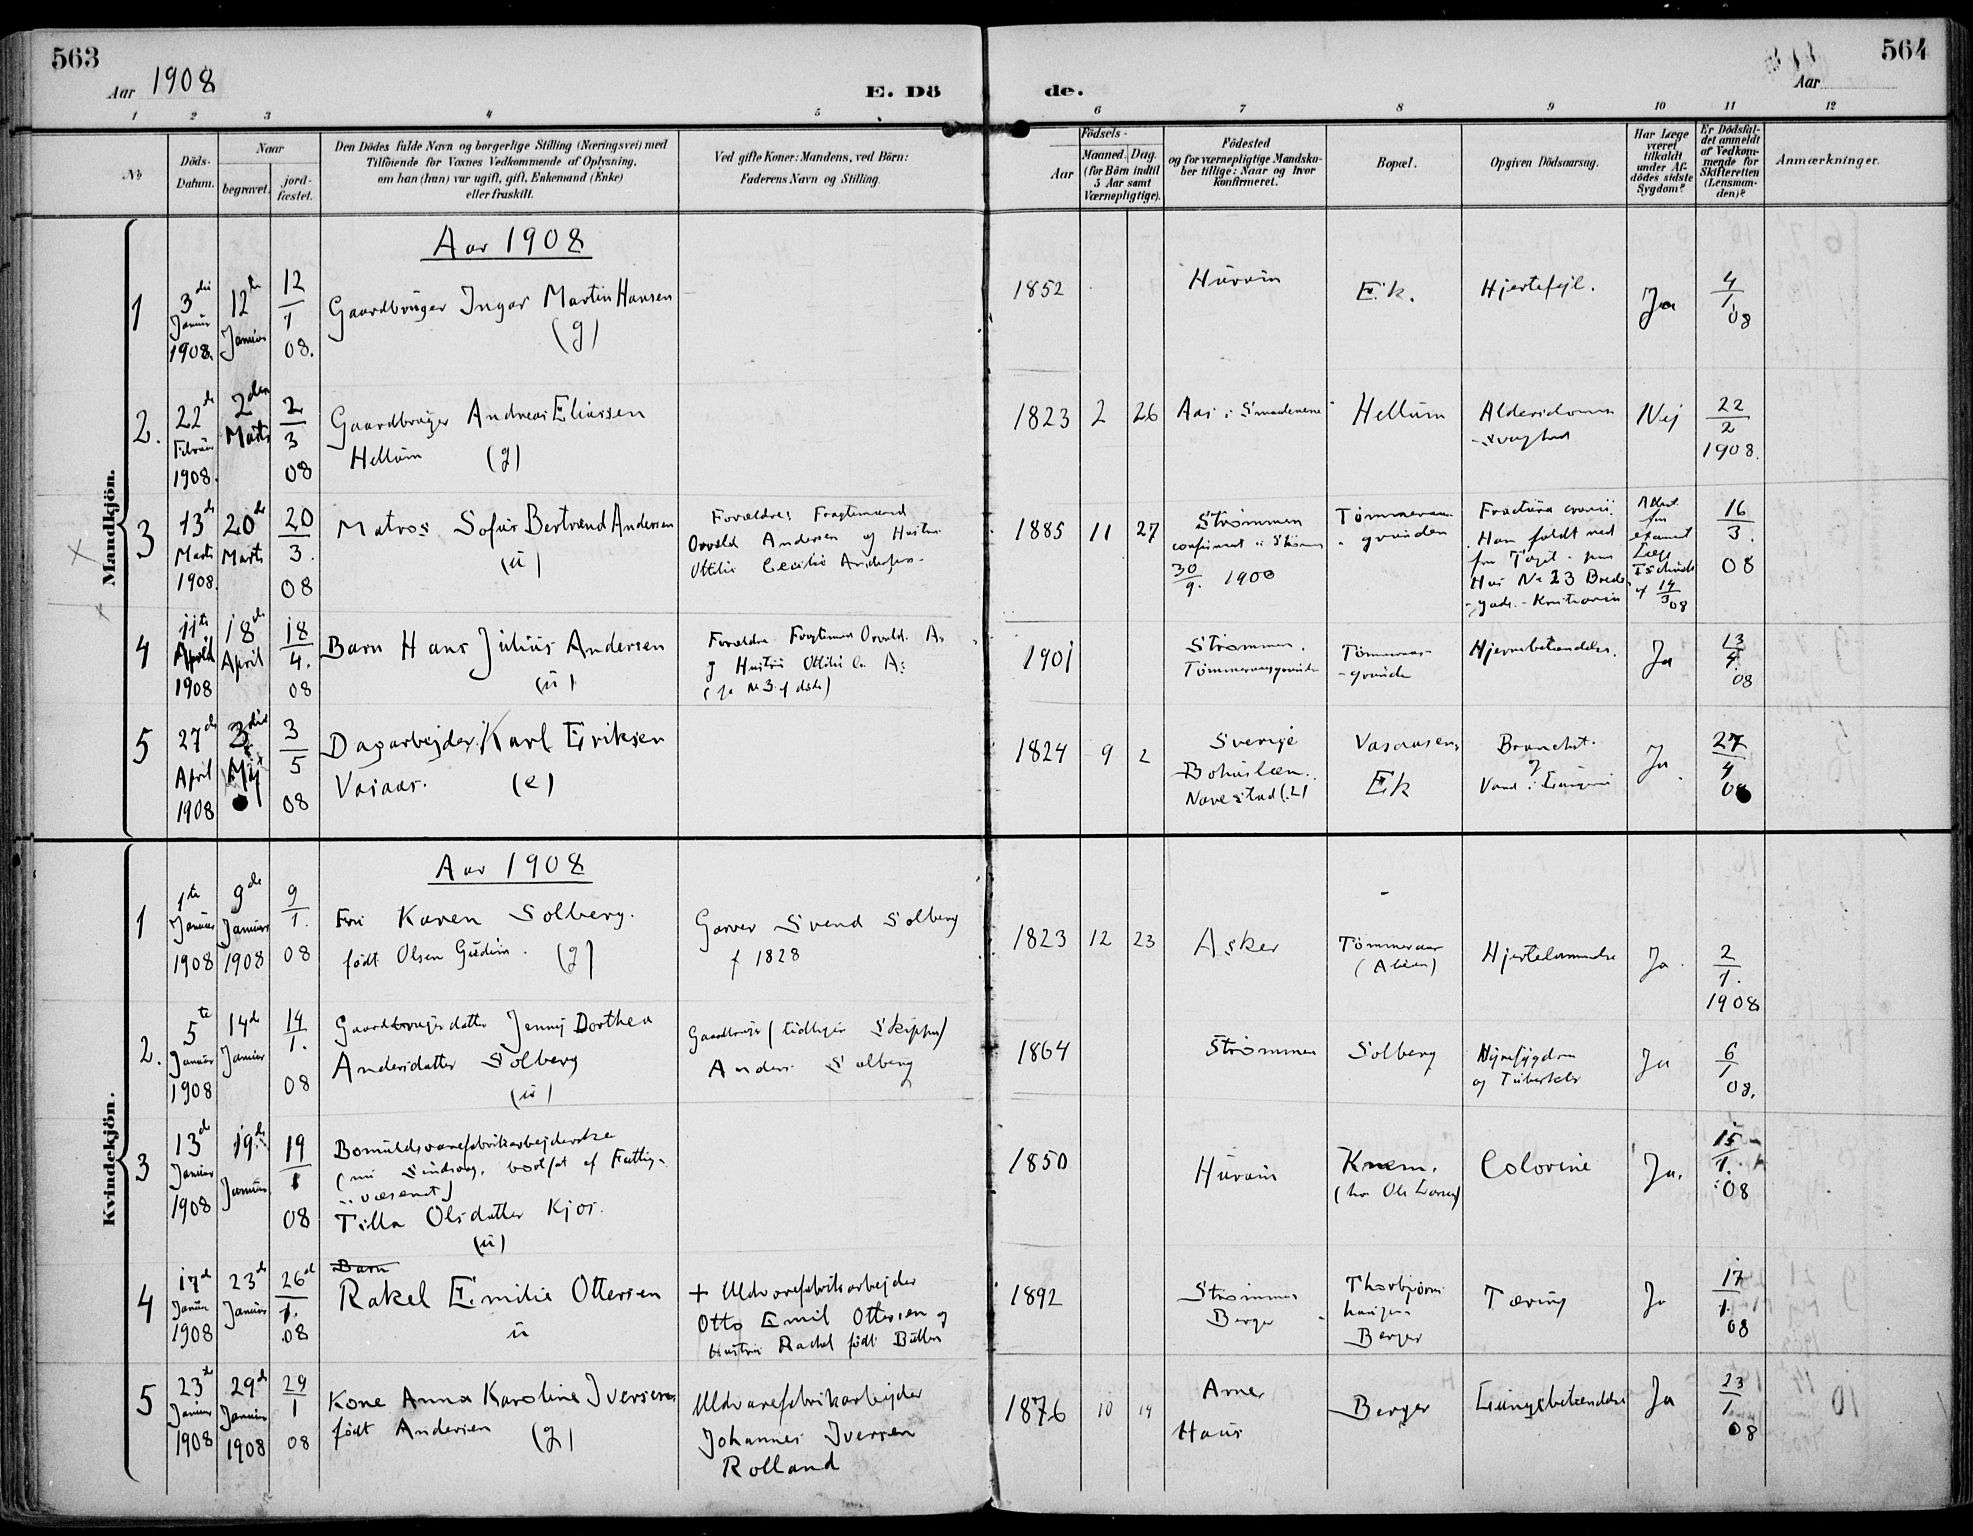 563
564
Aar 1908
E. Dö
de.
Aar
1 2 3 4 5 6 7 8 9 10 11 12
No
Döds-
Datum.
Naar
begravet.
jord-
fæstet.
Den Dödes fulde Navn og borgerlige Stilling (Næringsvei) med
Tilföiende for Voxnes Vedkommende af Oplysning,
om han (hun) var ugift, gift, Enkemand (Enke)
eller fraskilt.
Ved gifte Koner: Mandens, ved Börn:
Faderens Navn og Stilling.
Födsels-
Aar
Maaned. Dag.
(for Börn indtil
5 Aar samt
Værnepligtige).
Födested
og for værnepligtige Mandska-
ber tillige: Naar og hvor
konfirmeret.
Bopæl.
Opgiven Dödsaarsag.
Har Læge
været
tilkaldt
under Af-
dödes sidste
Sygdom?
Er Dödsfal-
det anmeldt
af Vedkom-
mende for
Skifteretten
(Lensman-
den)?
Anmærkninger.
Mandkjön.
Aar 1908
1
3die
Januar
1908
12te
Januar
12
1
08.
Gaardbruger Ingar Martin Hansen
(g)
1852
Hurum
Ek.
Hjertefejl.
Ja
4
1
08
2.
22de
Februar
1908.
2den
Marts
2
3
08
Gaardbruger Andreas Eliassen
Hellum (g)
1823 2 26
Aas i Smaalenene
Hellum
Alderdoms
-svaghed
Nej
22
2
1908.
3
13de
Marts
1908.
20de
Marts
20
3.
08
Matros Sofus Bertrand Andersen
(u)
Forældre: Fragtemand
Orvald Andersen og Hustru
Ottilie Cecilie
1885 11 27
Strømmen
confirmeret i Strømm
30
9. 1900
Tømmeraas
grunden
Fractura cranii.
Han faldt ned
fra Taget paa
Hus No 23 Brede
-gade. - Kristiania
Attest
fra
Læge
af 14
3 08
16
3.
08
4
11te
April
1908
18de
April
18
4.
08
Barn Hans Julius Andersen
(u)
Forældre Fragtemand Orvald A.
og Hustru Ottilie Ce A:
1901
Strømmen.
Tømmeraasgrunden
Tømmeraas-
-grunden
Hjernebetændelse.
Ja
13
4
08
5
27de
April
1908
3die
Maj
3
5
08
Dagarbejder Karl Eriksen
Vasaas. (e)
1824 9 2
Sverige
Bohuslæn.
Navestad (?)
Vasaasen,
Ek
Bronchit.
og
Vand i Lungene
Ja
27
4
08
Kvindekjön.
Aar 1908
1
1te
Januar
1908
9de
Januar
1908
9
1.
08
Fru Karen Solberg.
født Olsen Gudim. (g)
Garver Svend Solberg
f 1828
1823 12 23
Asker
Tømmeraas
Hjertelammelse
Ja
2
1.
1908
2.
5te
Januar
1908
14de
Januar
14
1.
08
Gaardbrugerdatter Jenny Dorthea
Andersdatter Solberg
(u)
Gaardbruger (tidligere Skipper)
Anders Solberg
1864
Strømmen
Solberg
Nyresygdom
og Tuberkler
Ja
6
1
08.
3
13de
Januar
1908
19de
Januar
19
1
08
Bomuldsvarefabrikarbejderske
(nu Sindssvag, bortsat af Fattig-
væsenet)
Tilla Olsdatter Kjos.
(u)
1850
Hurum
Knem.
(hos Ole Larsen)
Colorine
Ja.
15
1.
08
4
17de
Januar
1908
23de
Januar
26de
1.
08
Barn
Rakel Emilie Ottersen
u
+ Uldvarefabrikarbejder
Otto Emil Ottersen og
Hustru Rachel født Butler
1892
Strømmen
Berger
Thorbjørns
haugen
Berger
Tæring
Ja
17
1.
08
5
23de
Januar
1908
29de
Januar
1908
29
1
08
Kone Anna Karoline Iversen
født Andersen (g)
Uldvarefabrikarbejder
Johannes Iversen
Rolland
1876 10 14
Arner
Haus
Berger
Lungebetændelse
Ja
23
1.
08